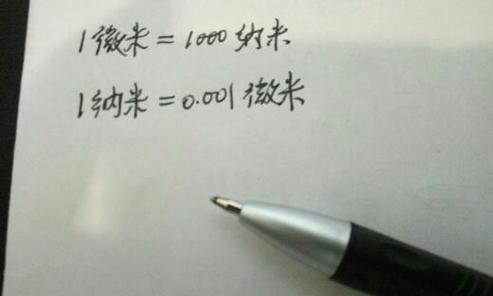 1微米=1000纳米
1纳米=0.001微米